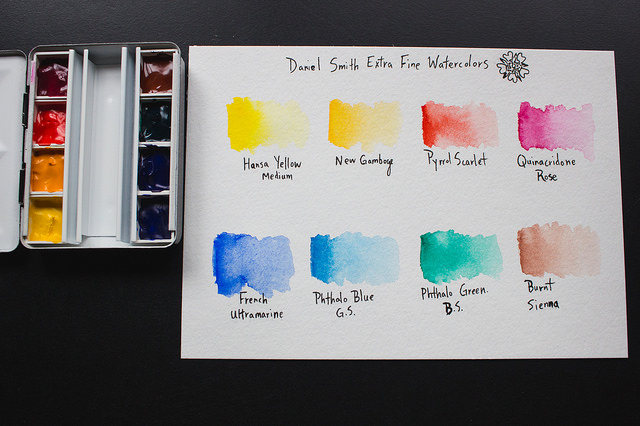 Daniel Smith Extra Fine Watercolors
Hansa Yellow
Medium
New Gamboge
Pyrrol Scarlet
Quinacridone
Rose
French
Ultramarine
Phthalo Blue
G.S.
Phthalo Green.
B.S.
Burnt
Sienna